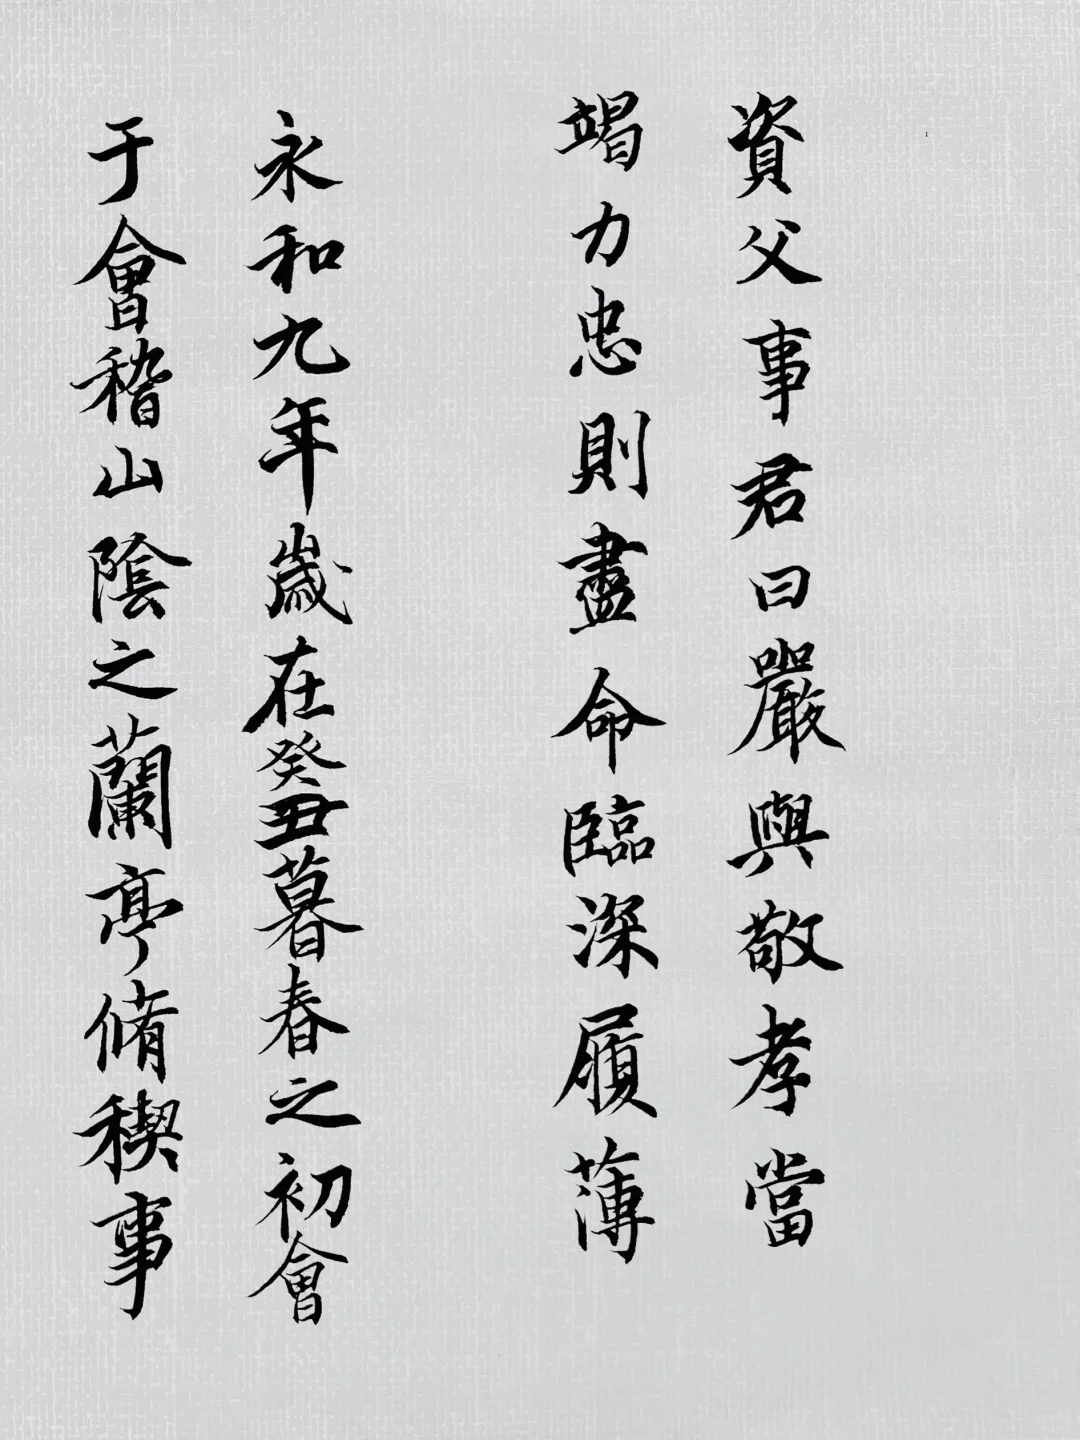 資父事君曰嚴與敬孝當
竭力忠則盡命臨深履薄
永和九年歲在癸丑暮春之初會
于會稽山陰之蘭亭脩稧事